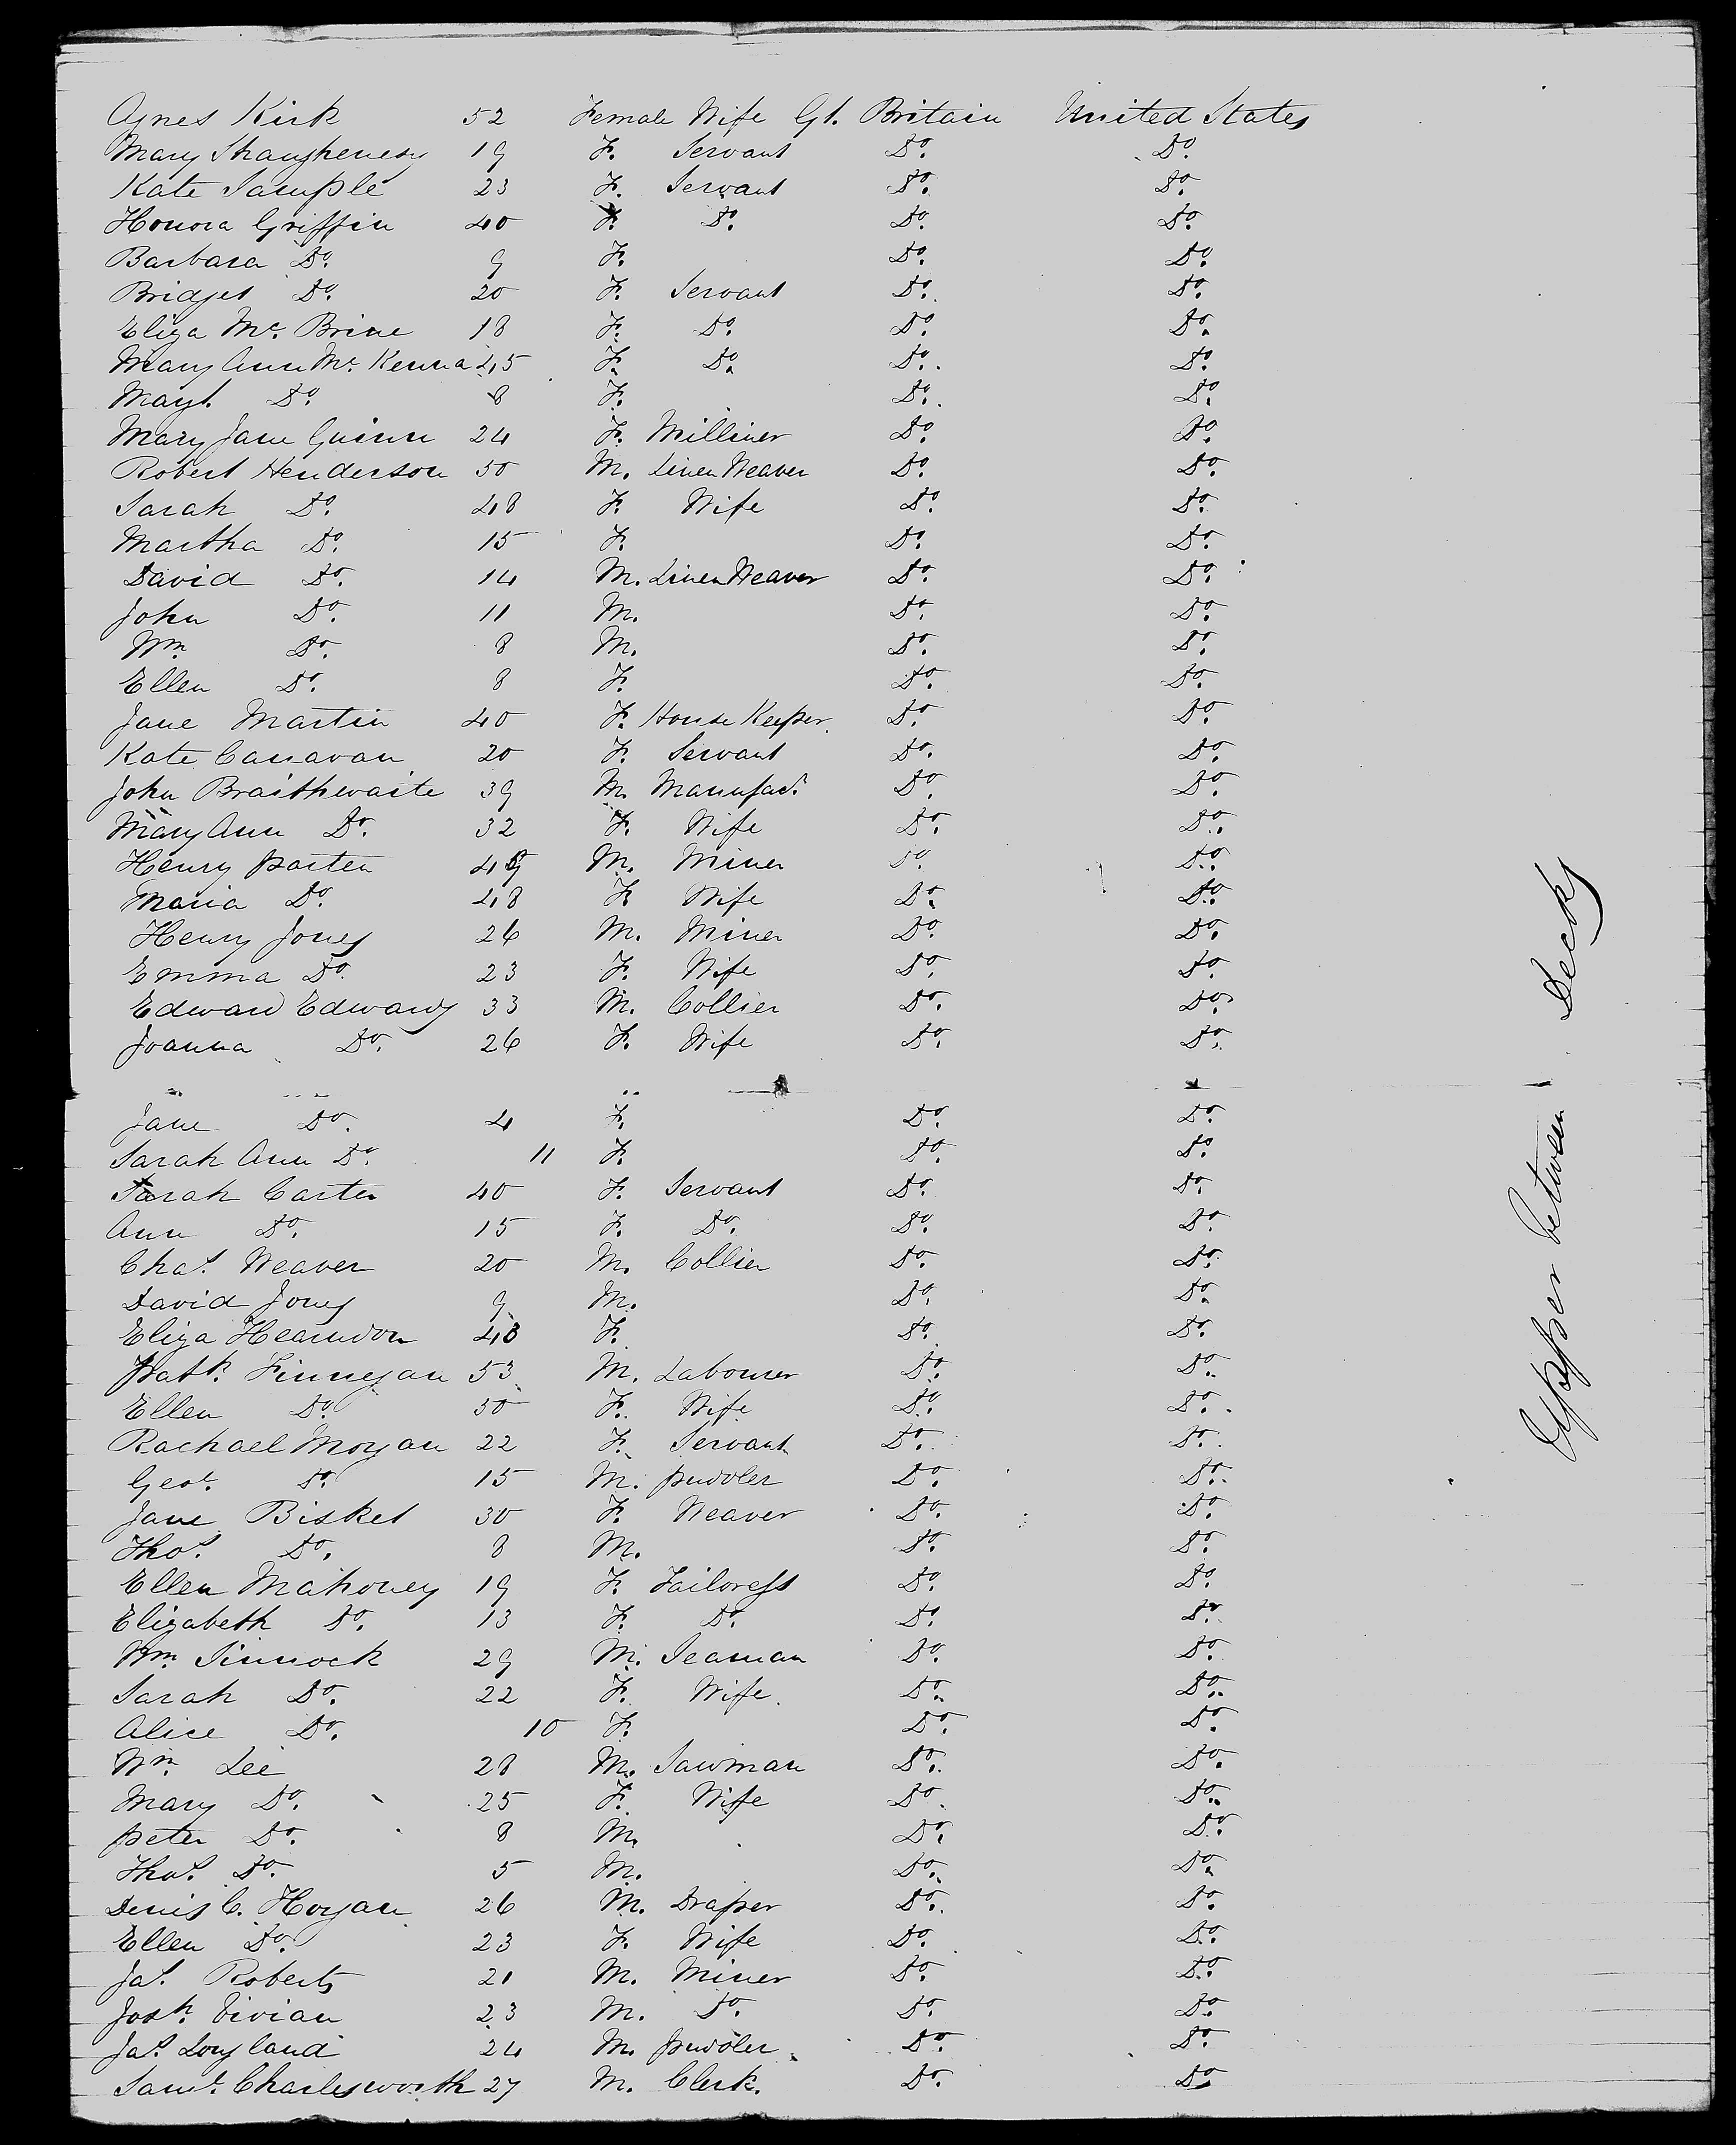 Agnes Kirk 52 Female Wife Gt. Britain United States
Mary Shaughenesy 19 F. Servant Do. Do.
Kate Sample 23 F. Servant Do. Do.
Honora Griffin 40 F. Do. Do. Do.
Barbara Do. 9 F. Do. Do.
Bridget Do. 20 F. Servant Do. Do.
Eliza Mc. Brine 18 F. Do. Do. Do.
Mary Ann Mc. Kenna 45 F. Do. Do. Do.
Magt. Do. 8 F. Do. Do.
Mary Jane Guinn 24 F. Milliner Do. Do.
Robert Henderson 50 M. Linen Weaver Do. Do.
Sarah Do. 48 F. Wife Do. Do.
Martha Do. 15 F. Do. Do.
David Do. 14 M. Linen Weaver Do. Do.
John Do. 11 M. Do. Do.
Wm. Do. 8 M. Do. Do.
Ellen Do. 8 F. Do. Do.
Jane Martin 40 F. House Keeper. Do. Do.
Kate Canavan 20 F. Servant Do. Do.
John Braithwaite 39 M. Manufact. Do. Do.
Mary Ann Do. 32 F. Wife Do. Do.
Henry parten M. Miner Do. Do.
Maria Do. 48 F. Wife Do. Do.
Henry Jones 26 M. Miner Do. Do.
Emma Do. 23 F. Wife Do. Do.
Edward Edwards 33 M. Collier Do. Do.
Joanna Do. 26 F. Wife Do. Do.
Jane Do. 4 F. Do. Do.
Sarah Ann Do. 11 F. Do. Do.
Sarah Carter 40 F. Servant Do. Do.
Ann Do. 15 F. Do. Do. Do.
Chas. Weaver 20 M. Collier Do. Do.
David Jones 9 M. Do. Do.
Eliza Hearndon 48 F. Do. Do.
patk. Finnegan 53 M. Labourer Do. Do.
Ellen Do. 50 F. Wife Do. Do.
Rachael Morgan 22 F. Servant Do. Do.
Geoe. Do. 15 M. pudler Do. Do.
Jane Bisket 30 F. Weaver Do. Do.
Thos. Do. 8 M. Do. Do.
Ellen Mahoney 19 F. Tailoress Do. Do.
Elizabeth Do. 13 F. Do. Do. Do.
Wm. Sinnock 29 M. Seaman Do. Do.
Sarah Do. 22 F. Wife Do. Do.
Alice Do. 10 F. Do. Do.
Wm. Lee 28 M. Sawman Do. Do.
Mary Do. 25 F. Wife Do. Do.
peter Do. 8 M. Do. Do.
Thos. Do. 5 M. Do. Do.
Denis C. Hogan 26 M. Draper Do. Do.
Ellen Do. 23 F. Wife Do. Do.
Jas. Roberts 21 M. Miner Do. Do.
Josh. Vivian 23 M. Do. Do. Do.
Jas. Longland 24 M. pudler Do. Do.
Saml. Charlesworth 27 M. Clerk. Do. Do.
Upper between Decks